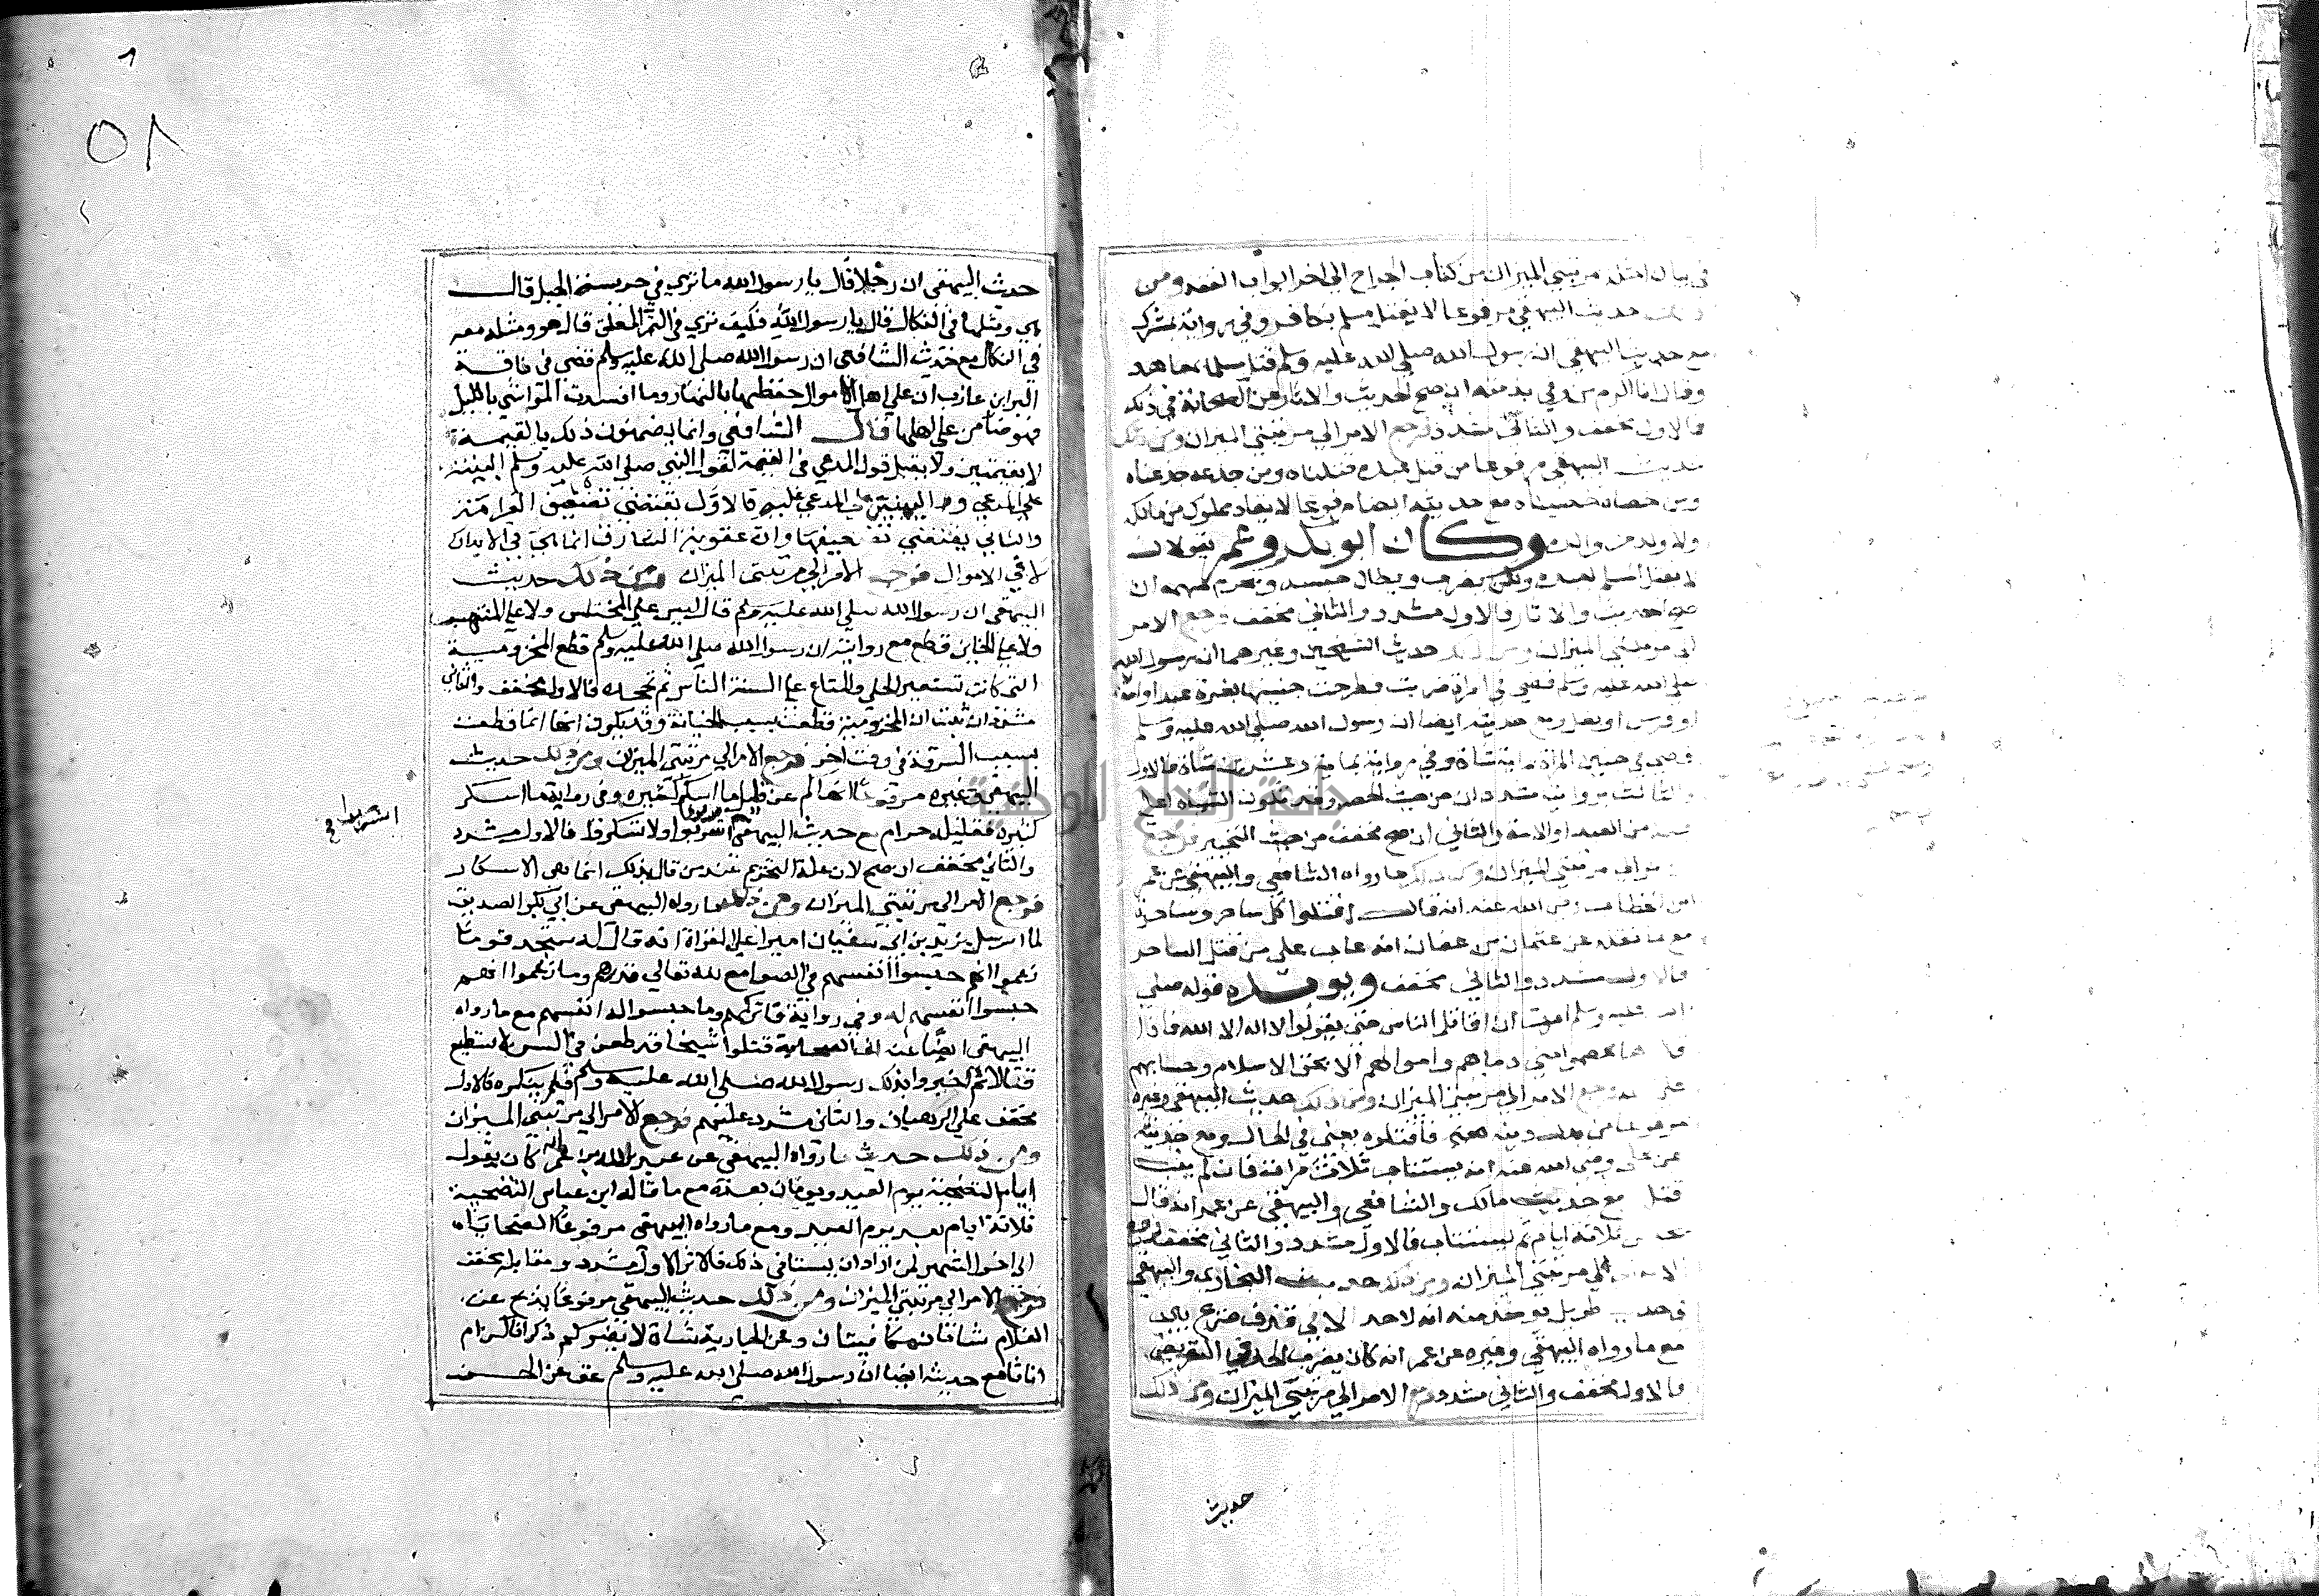 في بيان امثلة مرتبتي الميزان من كتاب الجراح الى اخر ابواب الفقه ومن
ذلك حديث البيهقي مرفوعا لا يقتل مسلم بكافر وفي رواية بمشرك
مع حديث البيهقي ان رسول الله صلي الله عليه وسلم قتل مسلما بمعاهد
وقال انا اكرم من وفي بذمته ان صح الحديث والاثار عن الصحابة في ذلك
فالاول مخفف والثاني مشدد فرجع الامر الي مرتبتي الميزان ومن ذلك
حديث البيهقي مرفوعا من قتل عبده قتلناه ومن جدعه جدعناه
ومن خصاه خصيناه مع حديثه ايضا مرفوعا لا يقاد مملوك من مالك
ولا ولد من والده وكان ابو بكر وعمر يقولان
لا يقتل المسلم بعبده ولكن يضرب ويطال حبسه ويحرم سهمه ان
صح الحديث والاثار فالاول مشدد والثاني مخفف فرجع الامر
الي مرتبتي الميزان ومن ذلك حديث الشيخين وغيرهما ان رسول الله
صلي الله عليه وسلم قضي في امراة ضربت فطرحت جنينها بغرة عبد او امة
او فرس او بغل مع حديثه ايضا ان رسول الله صلي الله عليه وسلم
قضي في جنين المراة بماية شاة وفي رواية بماية وعشرين شاة فالاول
والثالث مشددان من حيث الحصر وقد تكون الشياه اعلي
قيمة من العبد او الامة والثاني ان صح مخفف من حيث التخيير فرجع
الامر الي مرتبتي الميزان ومن ذلك ما رواه الشافعي والبيهقي عن عمر
ابن الخطاب رضي الله عنه انه قال اقتلوا كل ساحر وساحرة
مع ما نقله عن عثمان بن عفان انه عاب علي من قتل الساحر
فالاول مشدد والثاني مخفف ويويده قوله صلي
الله عليه وسلم امرت ان اقاتل الناس حتى يقولوا لا اله الا الله فاذا
قالوها عصموا مني دماهم واموالهم الا بحق الاسلام وحسابهم
على الله فرجع الامر الي مرتبتي الميزان ومن ذلك حديث البيهقي وغيره
مرفوعا من بدل دينه فاقتلوه يعني في الحال مع حديثه
عن علي رضي الله عنه انه يستتاب ثلاث مرات فان لم يتب
قتل مع حديث مالك والشافعي والبيهقي عن عمر انه قال
يحبس ثلاثة ايام ثم يستتاب فالاول مشدد والثاني مخفف فرجع
الامر الي مرتبتي الميزان ومن ذلك حديث البخاري والبيهقي
في حديث طويل يوخذ منه انه لاحد الا في قذف صريح بين
مع ما رواه البيهقي وغيره عن عمر انه كان يضرب الحد في التعريض
فالاول مخفف والثاني مشدد فرجع الامر الي مرتبتي الميزان ومن ذلك
حديث
٥٨
حديث البيهقي ان رجلا قال يا رسول الله ما تري في حريسة الجبل قال
هي ومثلها في النكال قال يا رسول الله فكيف تري في الثمر المعلق قال هو ومثله معه
في النكال مع حديث الشافعي ان رسول الله صلي الله عليه وسلم قضي في ناقة
البراء بن عازب ان علي اهل الاموال حفظها بالنهار وما افسدت المواشي بالليل
فهو ضامن علي اهلها قال الشافعي وانما يضمنون ذلك بالقيمة
لا بقيمتين ولا يقبل قول المدعي في القيمة لقول النبي صلي الله عليه وسلم البينة
علي المدعي واليمين علي المدعي عليه فالاول يقتضي تضعيف الغرامة
والثاني يقتضي تخفيفها وان عقوبة السارق انما هي في الابدان
لا في الاموال فرجع الامر الي مرتبتي الميزان ومن ذلك حديث
البيهقي ان رسول الله صلي الله عليه وسلم قال ليس علي المختلس ولا علي المنتهب
ولا علي الخاين قطع مع روايته ان رسول الله صلي الله عليه وسلم قطع المخزومية
التي كانت تستعير الحلي والمتاع علي السنة الناس ثم تجحده فالاول مخفف والثاني
مشدد ان ثبت ان المخزومية قطعت بسبب الخيانة وقد يكون انها انما قطعت
بسبب السرقة في وقت اخر فرجع الامر الي مرتبتي الميزان ومن ذلك حديث
البيهقي وغيره مرفوعا انهاكم عن قليل ما اسكر كثيره وفي رواية ما اسكر
كثيره فقليله حرام مع حديث البيهقي اشربوا ولا تسكروا فالاول مشدد
والثاني مخفف ان صح لان علة التحريم عند من قال بذلك انما هي الاسكار
فرجع الامر الي مرتبتي الميزان ومن ذلك ما رواه البيهقي عن ابي بكر الصديق
لما ارسل يزيد بن ابي سفيان اميرا علي الغزاة انه قال له ستجد قوما
زعموا انهم حبسوا انفسهم في الصوامع لله تعالي فذرهم وما زعموا انهم
حبسوا انفسهم له وفي رواية فاتركهم وما حبسوا له انفسهم مع ما رواه
البيهقي ايضا عن الصحابة قتلوا شيخا قد طعن في السن لا يستطيع
قتالا ثم اخبروا بذلك رسول الله صلي الله عليه وسلم فلم ينكره فالاول
مخفف علي الرهبان والثاني مشدد عليهم فرجع الامر الي مرتبتي الميزان
ومن ذلك حديث ما رواه البيهقي عن عبد الله بن عمر انه كان يقول
ايام التضحية يوم العيد ويومان بعده مع ما قاله ابن عباس التضحية
ثلاثة ايام بعد يوم العيد ومع ما رواه البيهقي مرفوعا الضحايا
الى اخر الشهر لمن اراد ان يستاني ذلك فالاثر الاول مشدد ومقابله مخفف
فرجع الامر الي مرتبتي الميزان ومن ذلك حديث البيهقي مرفوعا يذبح عن
الغلام شاتان مكافيتان وعن الجارية شاة لا يضركم ذكرانا كن ام
اناثا مع حديثه ايضا ان رسول الله صلي الله عليه وسلم عق عن الحسن
جامعة النجاح الوطنية